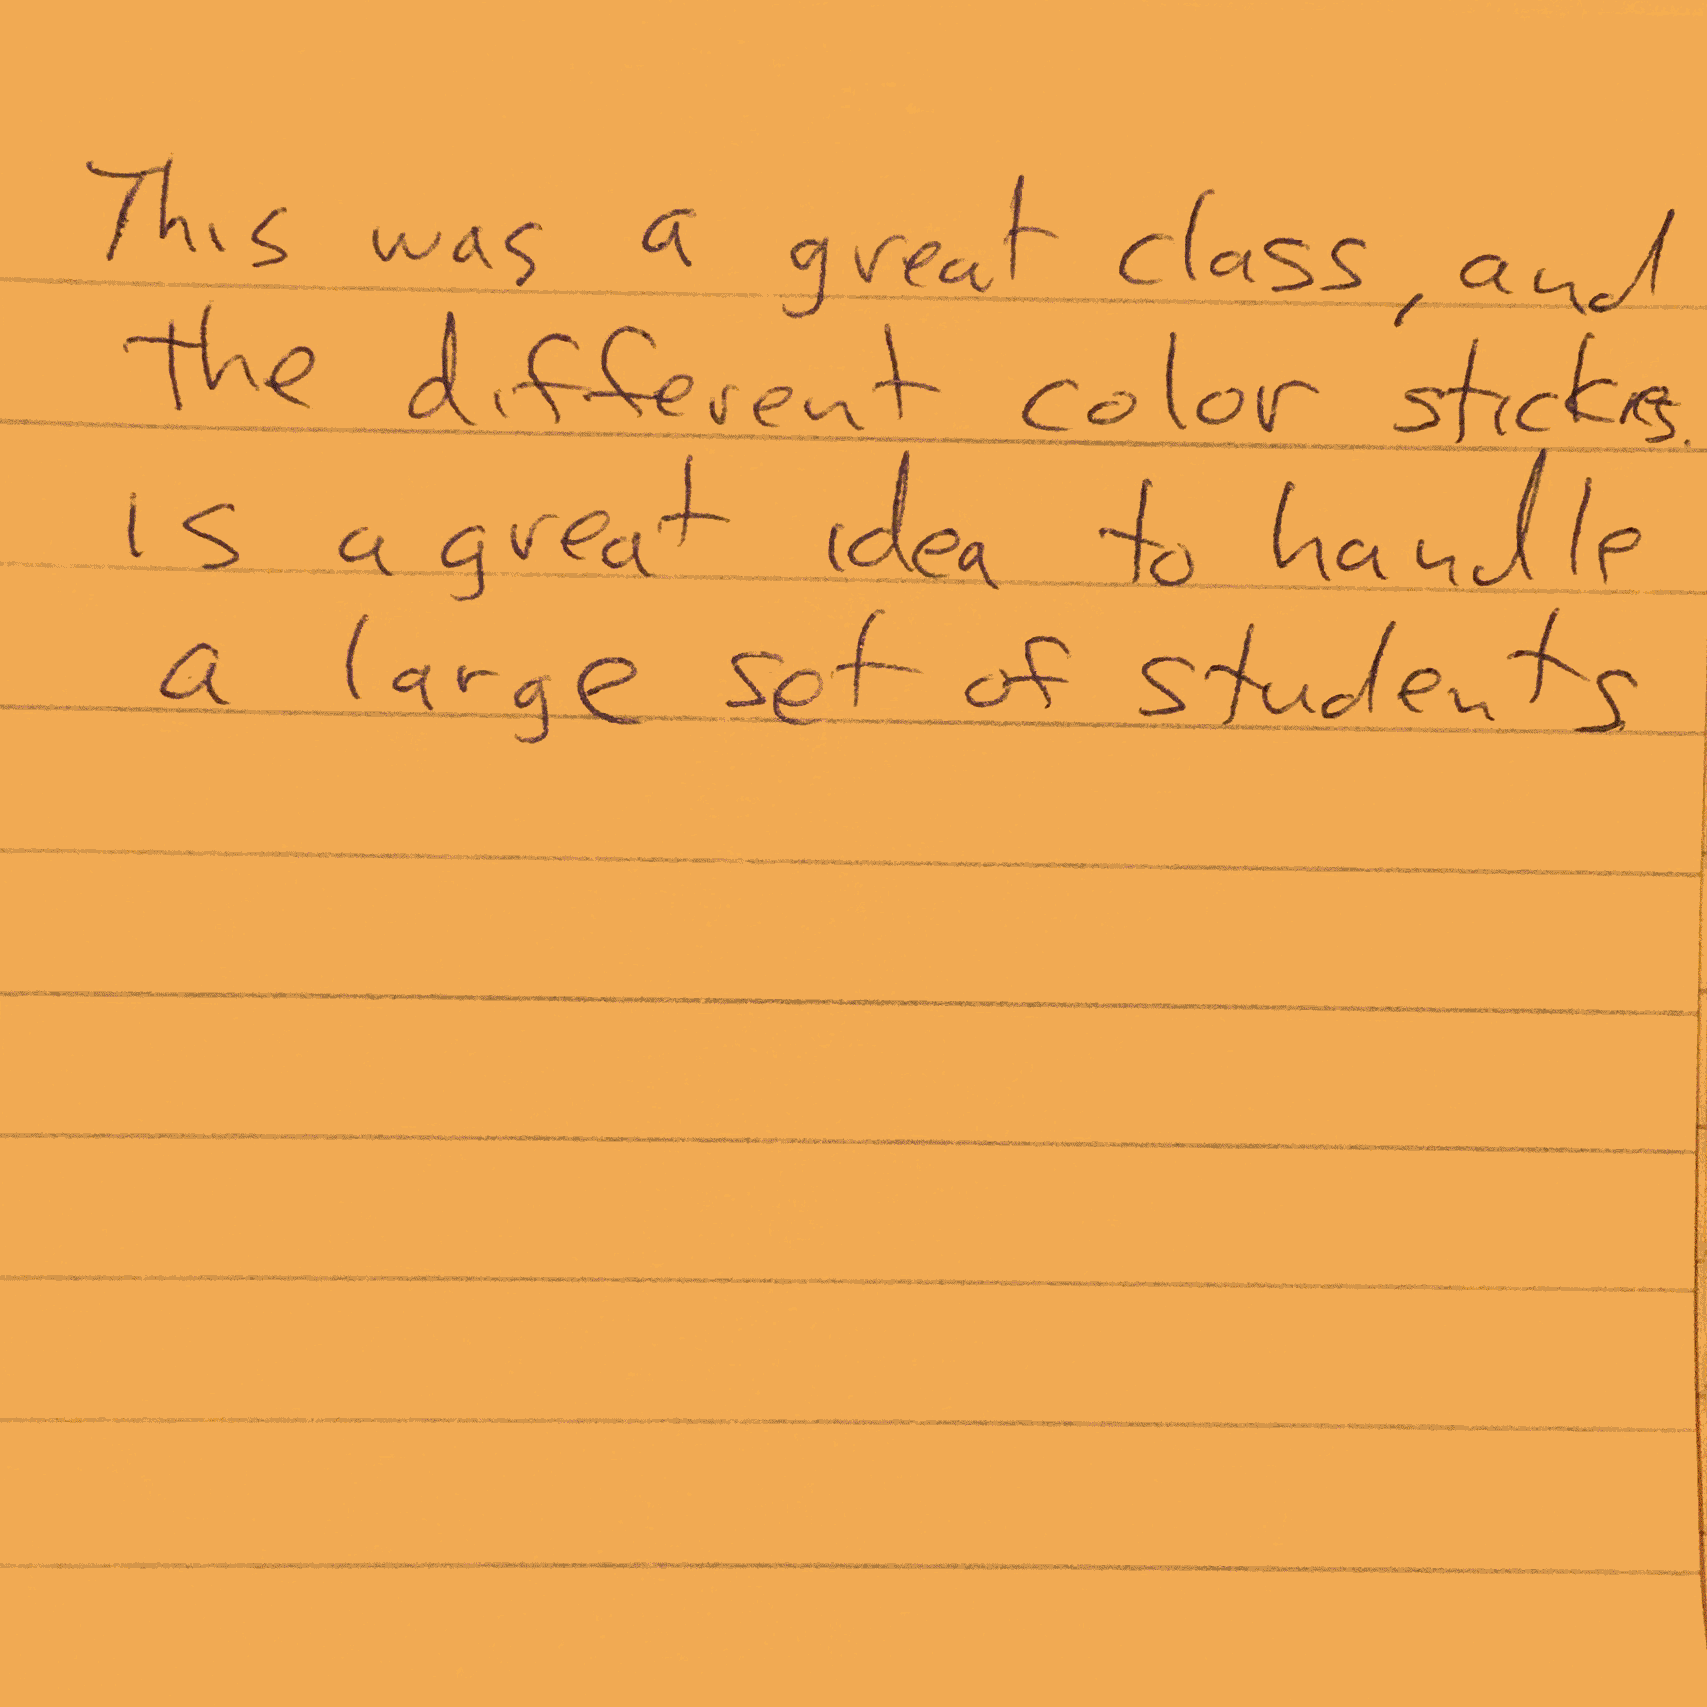 This was a great class, and
the different color stickies.
is a great idea to handle
a large set of students